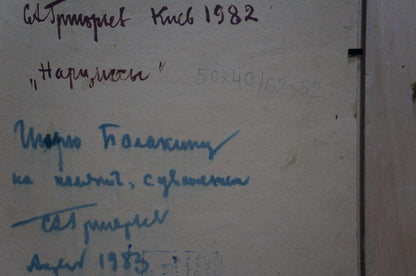 САГригорьев Киев 1982
„Нарциссы“ 50х40/62х52
Игорю Балакину
на память, с уважением
САГригорьев
1983